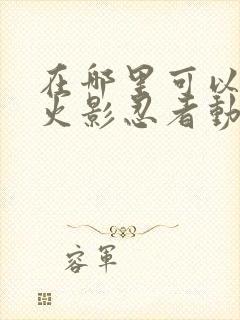 在哪里可以
火影忍者動
容軍